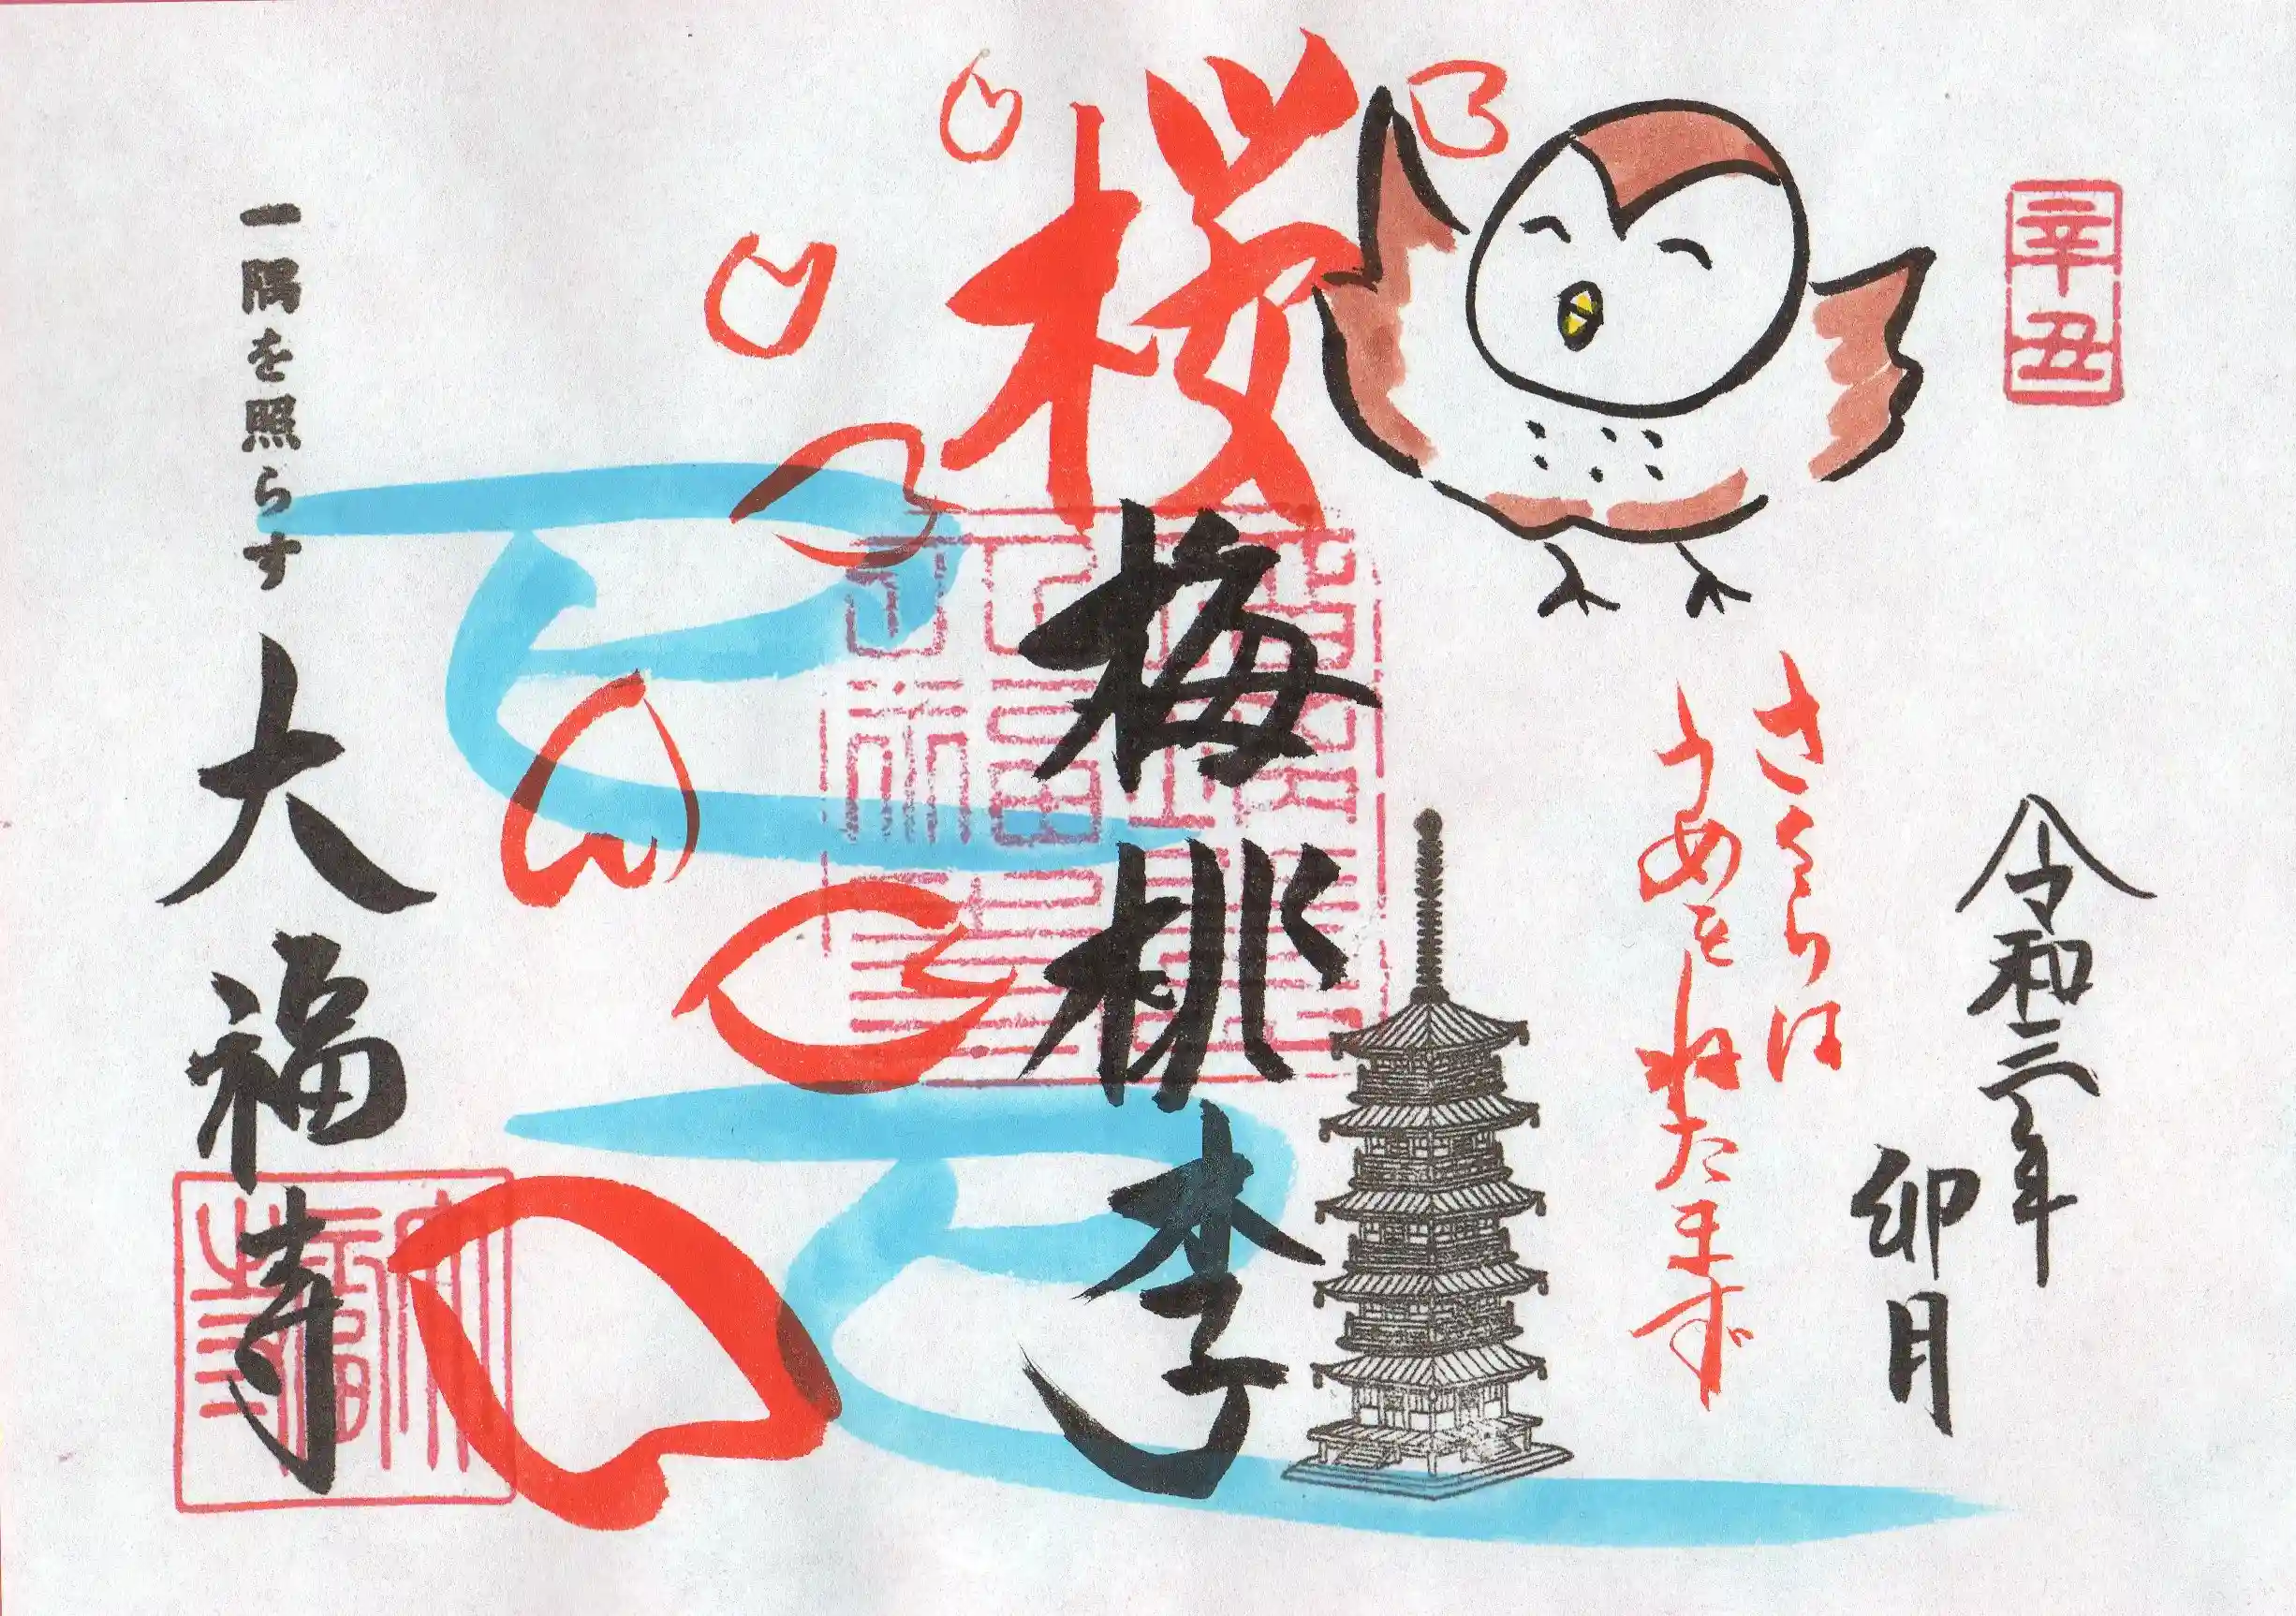 辛丑
令和三年
卯月
さくらは
うめをねたまず
桜
梅
桃
李
一隅を照らす
大福寺